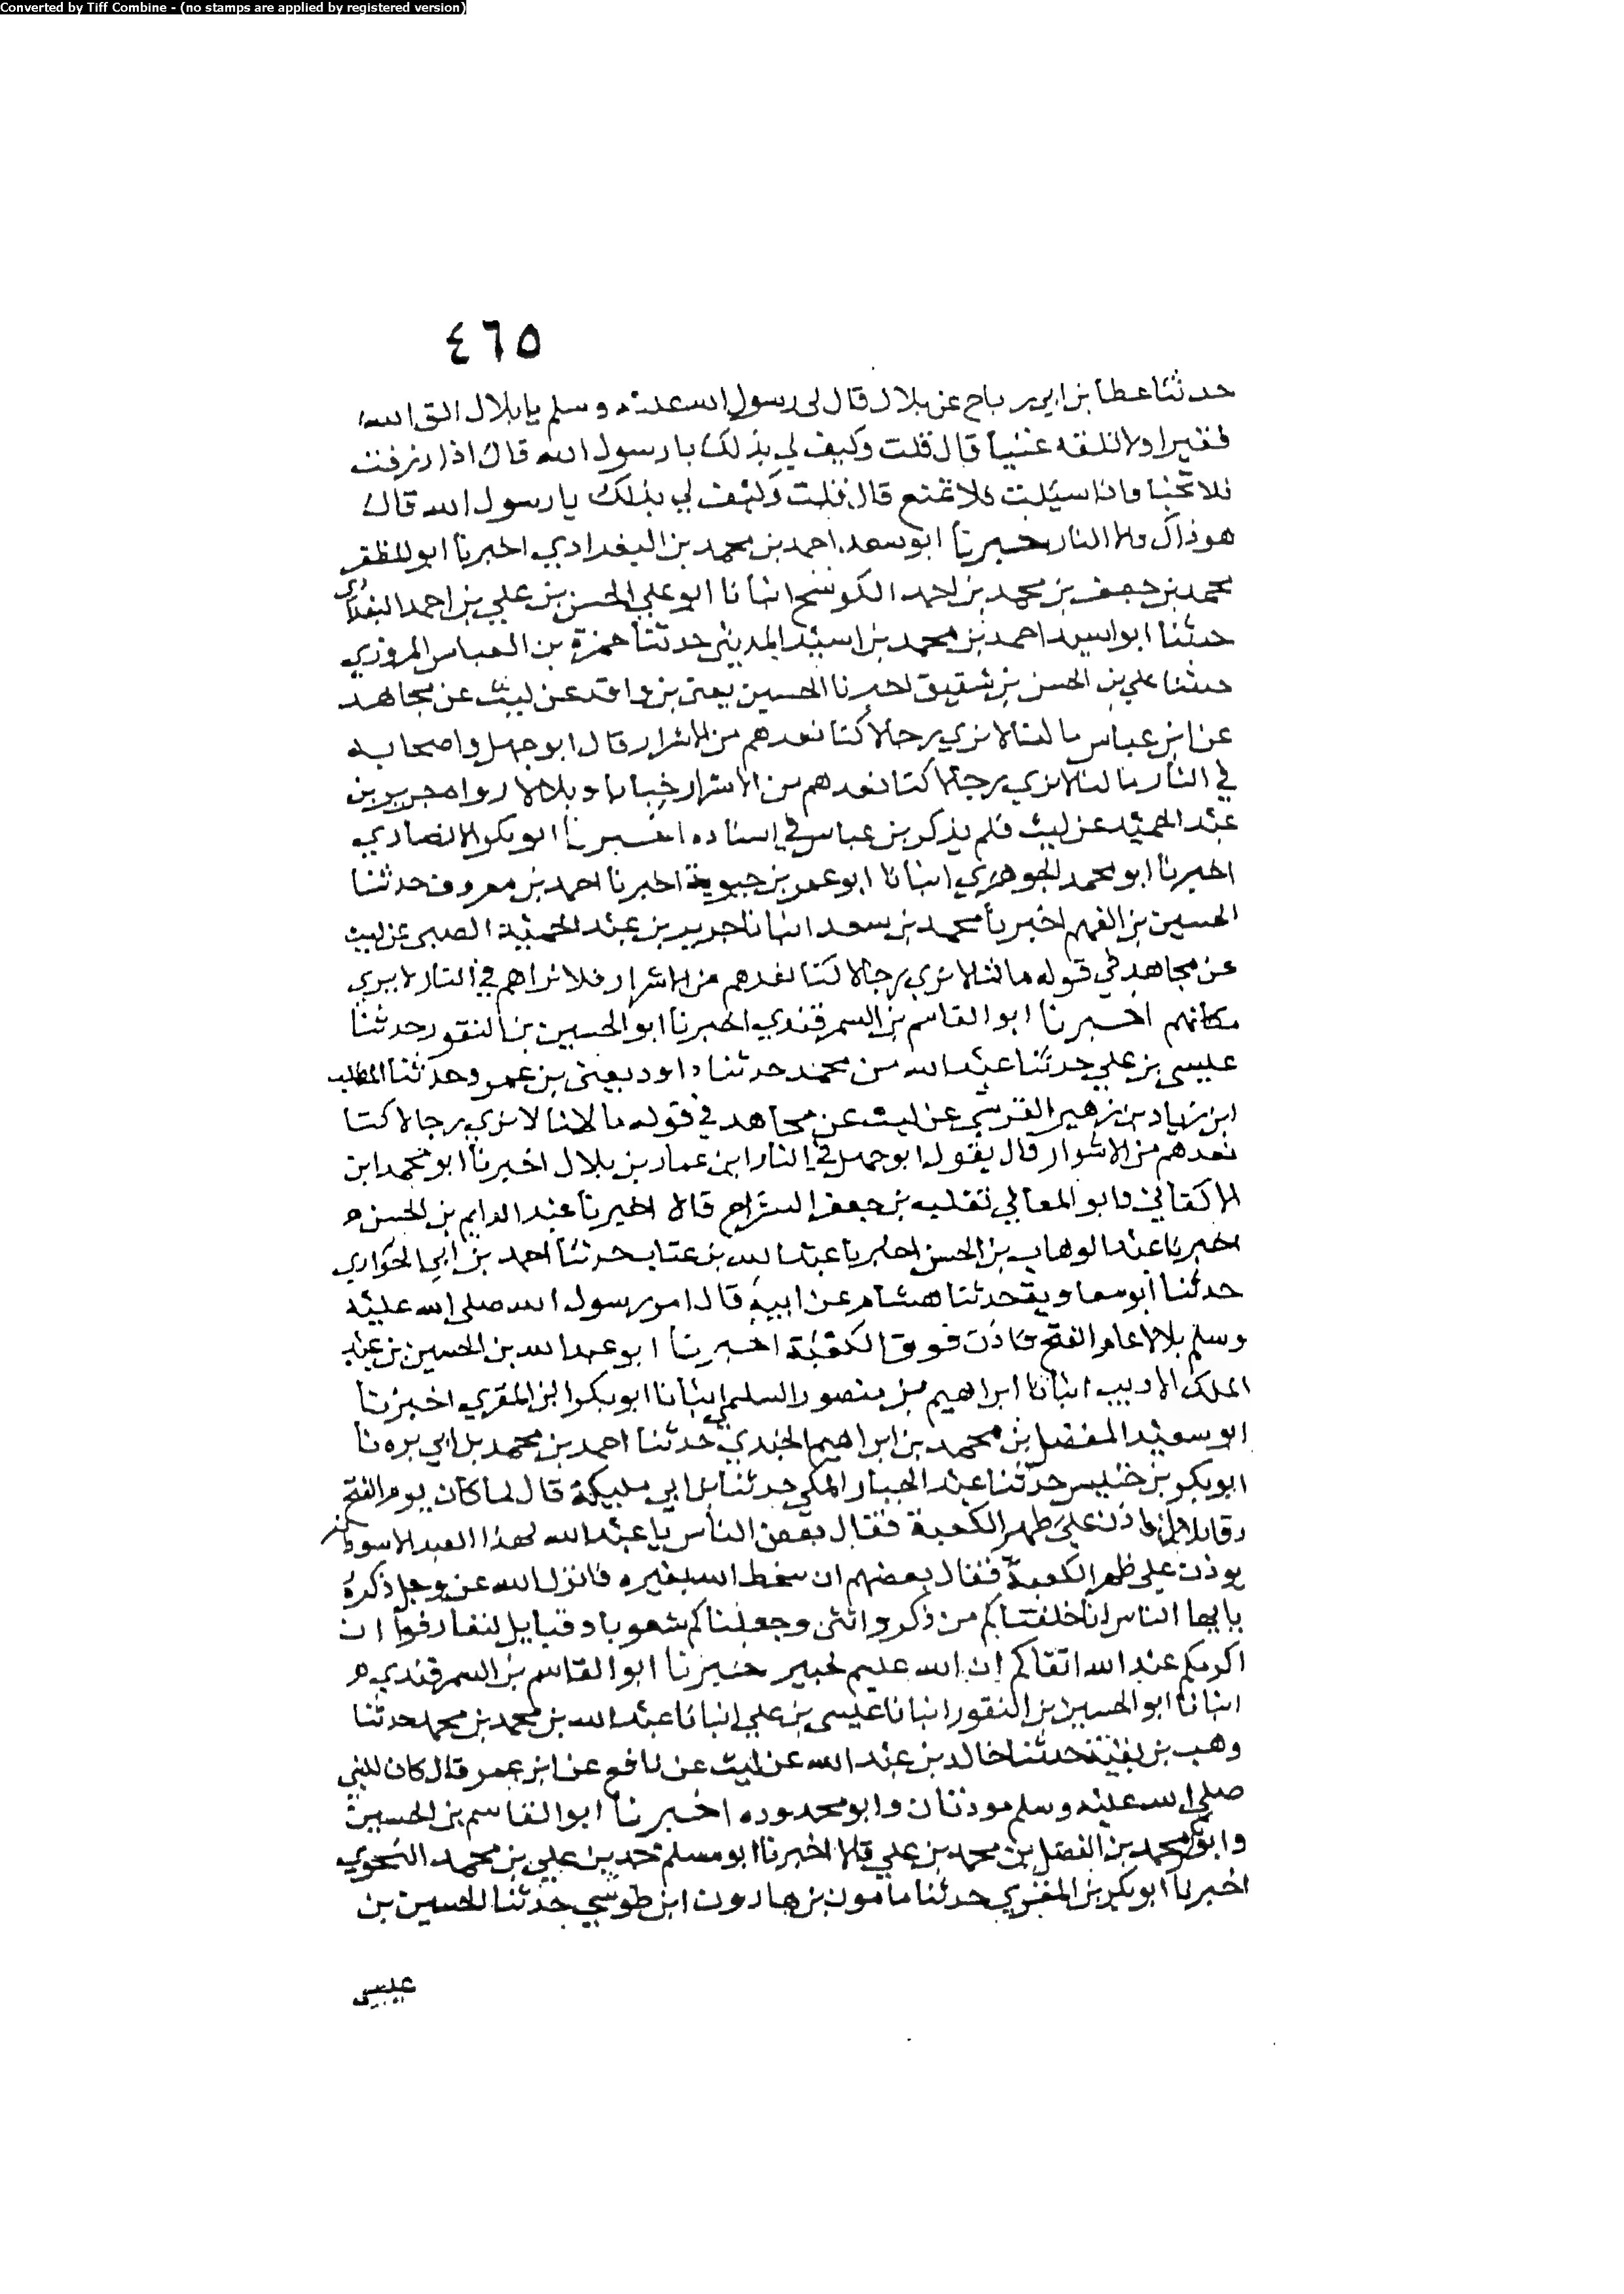 Converted by Tiff Combine - (no stamps are applied by registered version)
٤٦٥
حدثنا عطا بن ابي رباح عن بلال قال لي رسول الله عليه وسلم يا بلال الق الله
فقيرا ولا تلقه غنيا قال قلت وكيف لي بذلك يا رسول الله قال اذا رزقت
فلا تخبا واذا سيلت فلا تمنع قال فقلت وكيف لي بذلك يا رسول الله قال
هو ذاك والا النار خبرنا ابو سعد احمد بن محمد بن البغدادي اخبرنا ابو المظفر
محمد بن جعفر بن محمد بن احمد الكوسج انبانا ابو علي الحسن بن علي بن احمد البغدادي
حدثنا ابو اسيد احمد بن محمد بن اسيد المديني حدثنا حمزة بن العباس المروزي
حدثنا علي بن الحسن بن شقيق اخبرنا الحسين يعني بن واقد عن ليث عن مجاهد
عن ابن عباس ما لنا لا نري رجالا كنا نعدهم من الاشرار قال ابو جهل واصحابه
في النار ما لنا لا نري رجالا كنا نعدهم من الاشرار خبابا وبلالا رواه جرير بن
عبد الحميد عن ليث فلم يذكر بن عباس في اسناده اخبرنا ابو بكر الانصاري
اخبرنا ابو محمد الجوهري انبانا ابو عمر بن حيوية اخبرنا احمد بن معروف حدثنا
الحسين بن الفهم اخبرنا محمد بن سعد انبانا جرير بن عبد الحميد الضبي عن ليث
عن مجاهد في قوله ما لنا لا نري رجالا كنا نعدهم من الاشرار فلا نراهم في النار لا يري
مكانهم اخبرنا ابو القاسم بن السمرقندي اخبرنا ابو الحسين بن النقور حدثنا
عيسى بن علي حدثنا عبد الله بن محمد حدثنا داود يعني بن عمر وحدثنا المطلب
ابن زياد بن زهير القرشي عن ليث عن مجاهد في قوله ما لانا لا نري رجالا كنا
نعدهم من الاشرار قال يقول ابو جهل في النار ابن عمار بن بلال اخبرنا ابو محمد ابن
الاكفاني وابو المعالي تغلبه بن جعفر السراج قالا اخبرنا عبد الدايم بن الحسن
اخبرنا عبد الوهاب بن الحسن اخبرنا عبد الله بن عتاب حدثنا احمد بن ابي الحواري
حدثنا ابو معاوية حدثنا هشام عن ابيه قال امر رسول الله صلى الله عليه
وسلم بلالا عام الفتح فاذن فوق الكعبة اخبرنا ابو عبد الله بن الحسين بن عبد
الملك الاديب انبانا ابراهيم بن منصور السلمي انبانا ابو بكر ابن المقري اخبرنا
ابو سعيد المفضل بن محمد بن ابراهيم الجندي حدثنا احمد بن محمد بن ابي بره نا
ابو بكر بن خنيس حدثنا عبد الجبار المكي حدثنا بن ابي مليكة قال لما كان يوم الفتح
رقا بلال فاذن على ظهر الكعبة فقال بعض الناس يا عبد الله لهذا العبد الاسود
يوذن على ظهر الكعبة فقال بعضهم ان سخط الله يغيره فانزل الله عز وجل ذكره
يا ايها الناس انا خلقناكم من ذكر وانثى وجعلناكم شعوبا وقبايل لتعارفوا ان
اكرمكم عند الله اتقاكم ان الله عليم خبير خبرنا ابو القاسم بن السمرقندي
انبانا ابو الحسين بن النقور انبانا عيسى بن علي انبانا عبد الله بن محمد بن محمد حدثنا
وهب بن بقية حدثنا خالد بن عبد الله عن ليث عن نافع عن ابن عمر قال كان للنبي
صلى الله عليه وسلم موذنان وابو محدوره اخبرنا ابو القاسم بن الحسين
وابو بكر محمد بن الفضل بن محمد بن علي قالا اخبرنا ابو مسلم محمد بن علي بن محمد النحوي
اخبرنا ابو بكر بن المقري حدثنا مامون بن هارون ابن طوسي حدثنا الحسين بن
عيسى